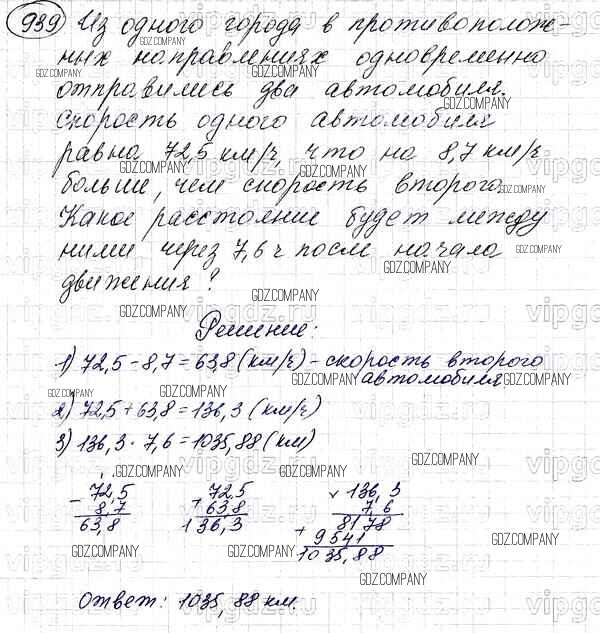 939 Из одного города в противополож-
ных направлениях одновременно
отправились два автомобиля.
Скорость одного автомобиля
равна 72,5 км/ч, что на 8,7 км/ч
больше, чем скорость второго.
Какое расстояние будет между
ними через 7,6 ч после начала
движения?
Решение:
1) 72,5 - 8,7 = 63,8 (км/ч) - скорость второго
автомобиля
2) 72,5 + 63,8 = 136,3 (км/ч)
3) 136,3 · 7,6 = 1035,88 (км)
- 72,5 + 72,5 × 136,3
8,7 63,8 7,6
63,8 136,3 8178
+ 9541
1035,88
Ответ: 1035,88 км.
GDZ.COMPANY
vipgdz.ru